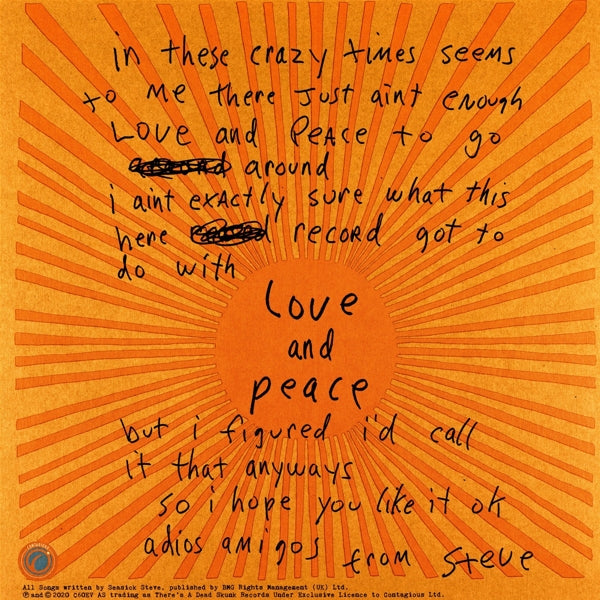 in these crazy times seems
to me there just aint enough
LOVE and PEACE to go
around
i aint exactly sure what this
here record got to
do with
Love
and
peace
but i figured i'd call
it that anyways
so i hope you like it ok
adios amigos from Steve
All Songs written by Seasick Steve, published by BMG Rights Management (UK) Ltd.
℗ and © 2020 C6GEV AS trading as There's A Dead Skunk Records Under Exclusive Licence to Contagious Ltd.